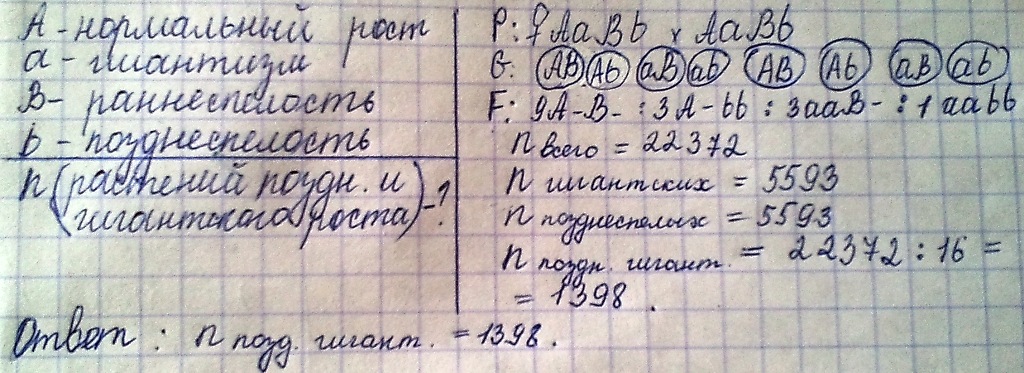 A - нормальный рост
a - гигантизм
B - раннеспелость
b - позднеспелость
n (растений поздн. и гигантского роста) - ?
P: ♀ AaBb x AaBb
G: AB Ab aB ab AB Ab aB ab
F: 9A-B- : 3A-bb : 3aaB- : 1aabb
n всего = 22372
n гигантских = 5593
n позднеспелых = 5593
n поздн. гигант. = 22372 : 16 =
= 1398.
Ответ: n позд. гигант. = 1398.